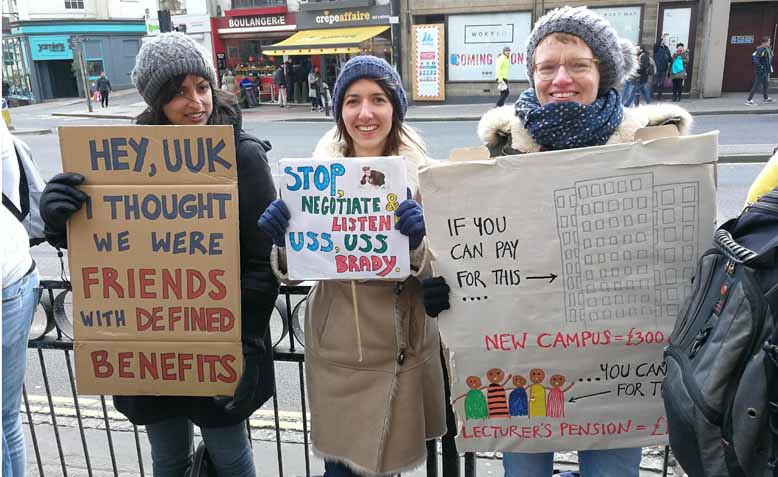 BOULANGERIE
CRÊPEAFFAIRE
WOKYKO
COMING SOON
HEY, UUK
I THOUGHT
WE WERE
FRIENDS
WITH DEFINED
BENEFITS
STOP,
NEGOTIATE &
LISTEN
USS, USS
BRADY.
IF YOU
CAN PAY
FOR THIS →
....
NEW CAMPUS = £300
...YOU CAN
FOR T
LECTURER'S PENSION = £